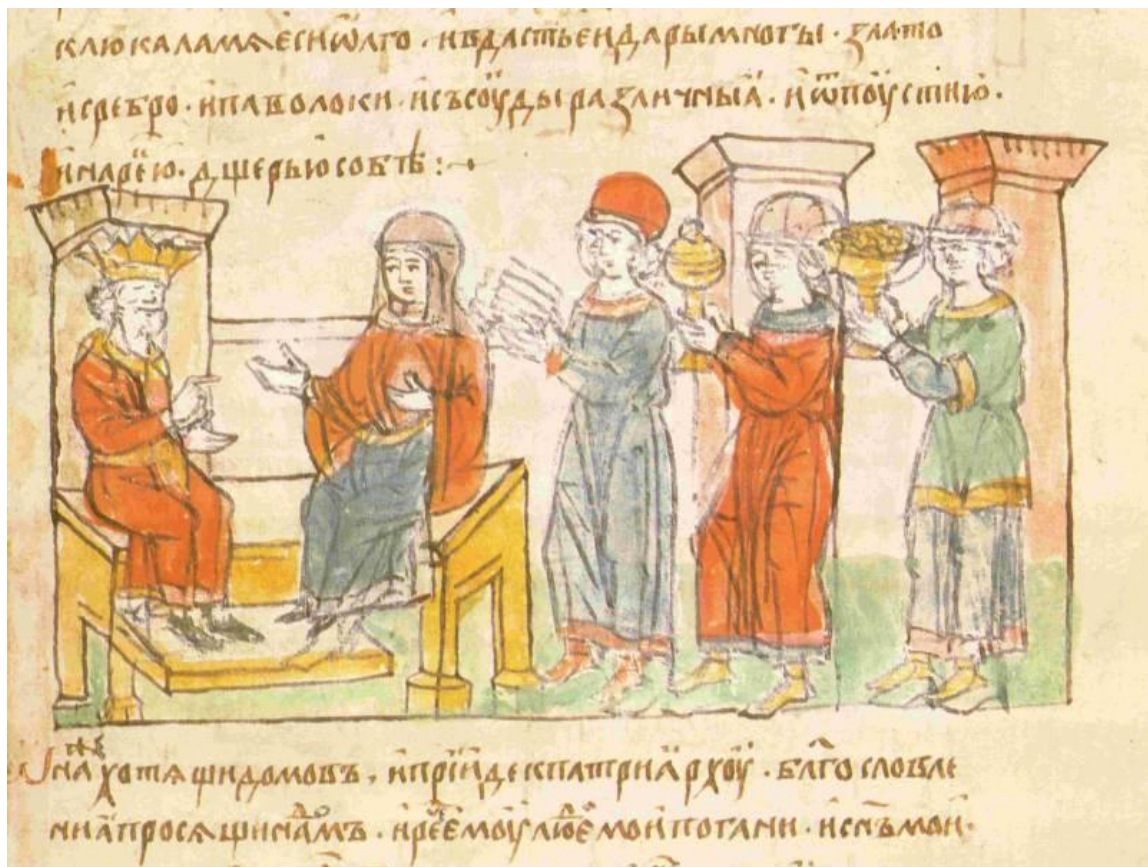 клюкала мѧ еси ѡлго · и вдасть еи дары многы · злато
и сребро · и паволоки · и съсоуды различныѧ · и ѿпоусти ю ·
и нарею · дщерью собѣ :
она же хотѧщи домовъ , и прїиде к патриархоу · блг҃ословле
ниа просѧщи на домъ · и рече емоу людїе мои погани · и сн҃ъ мои ·